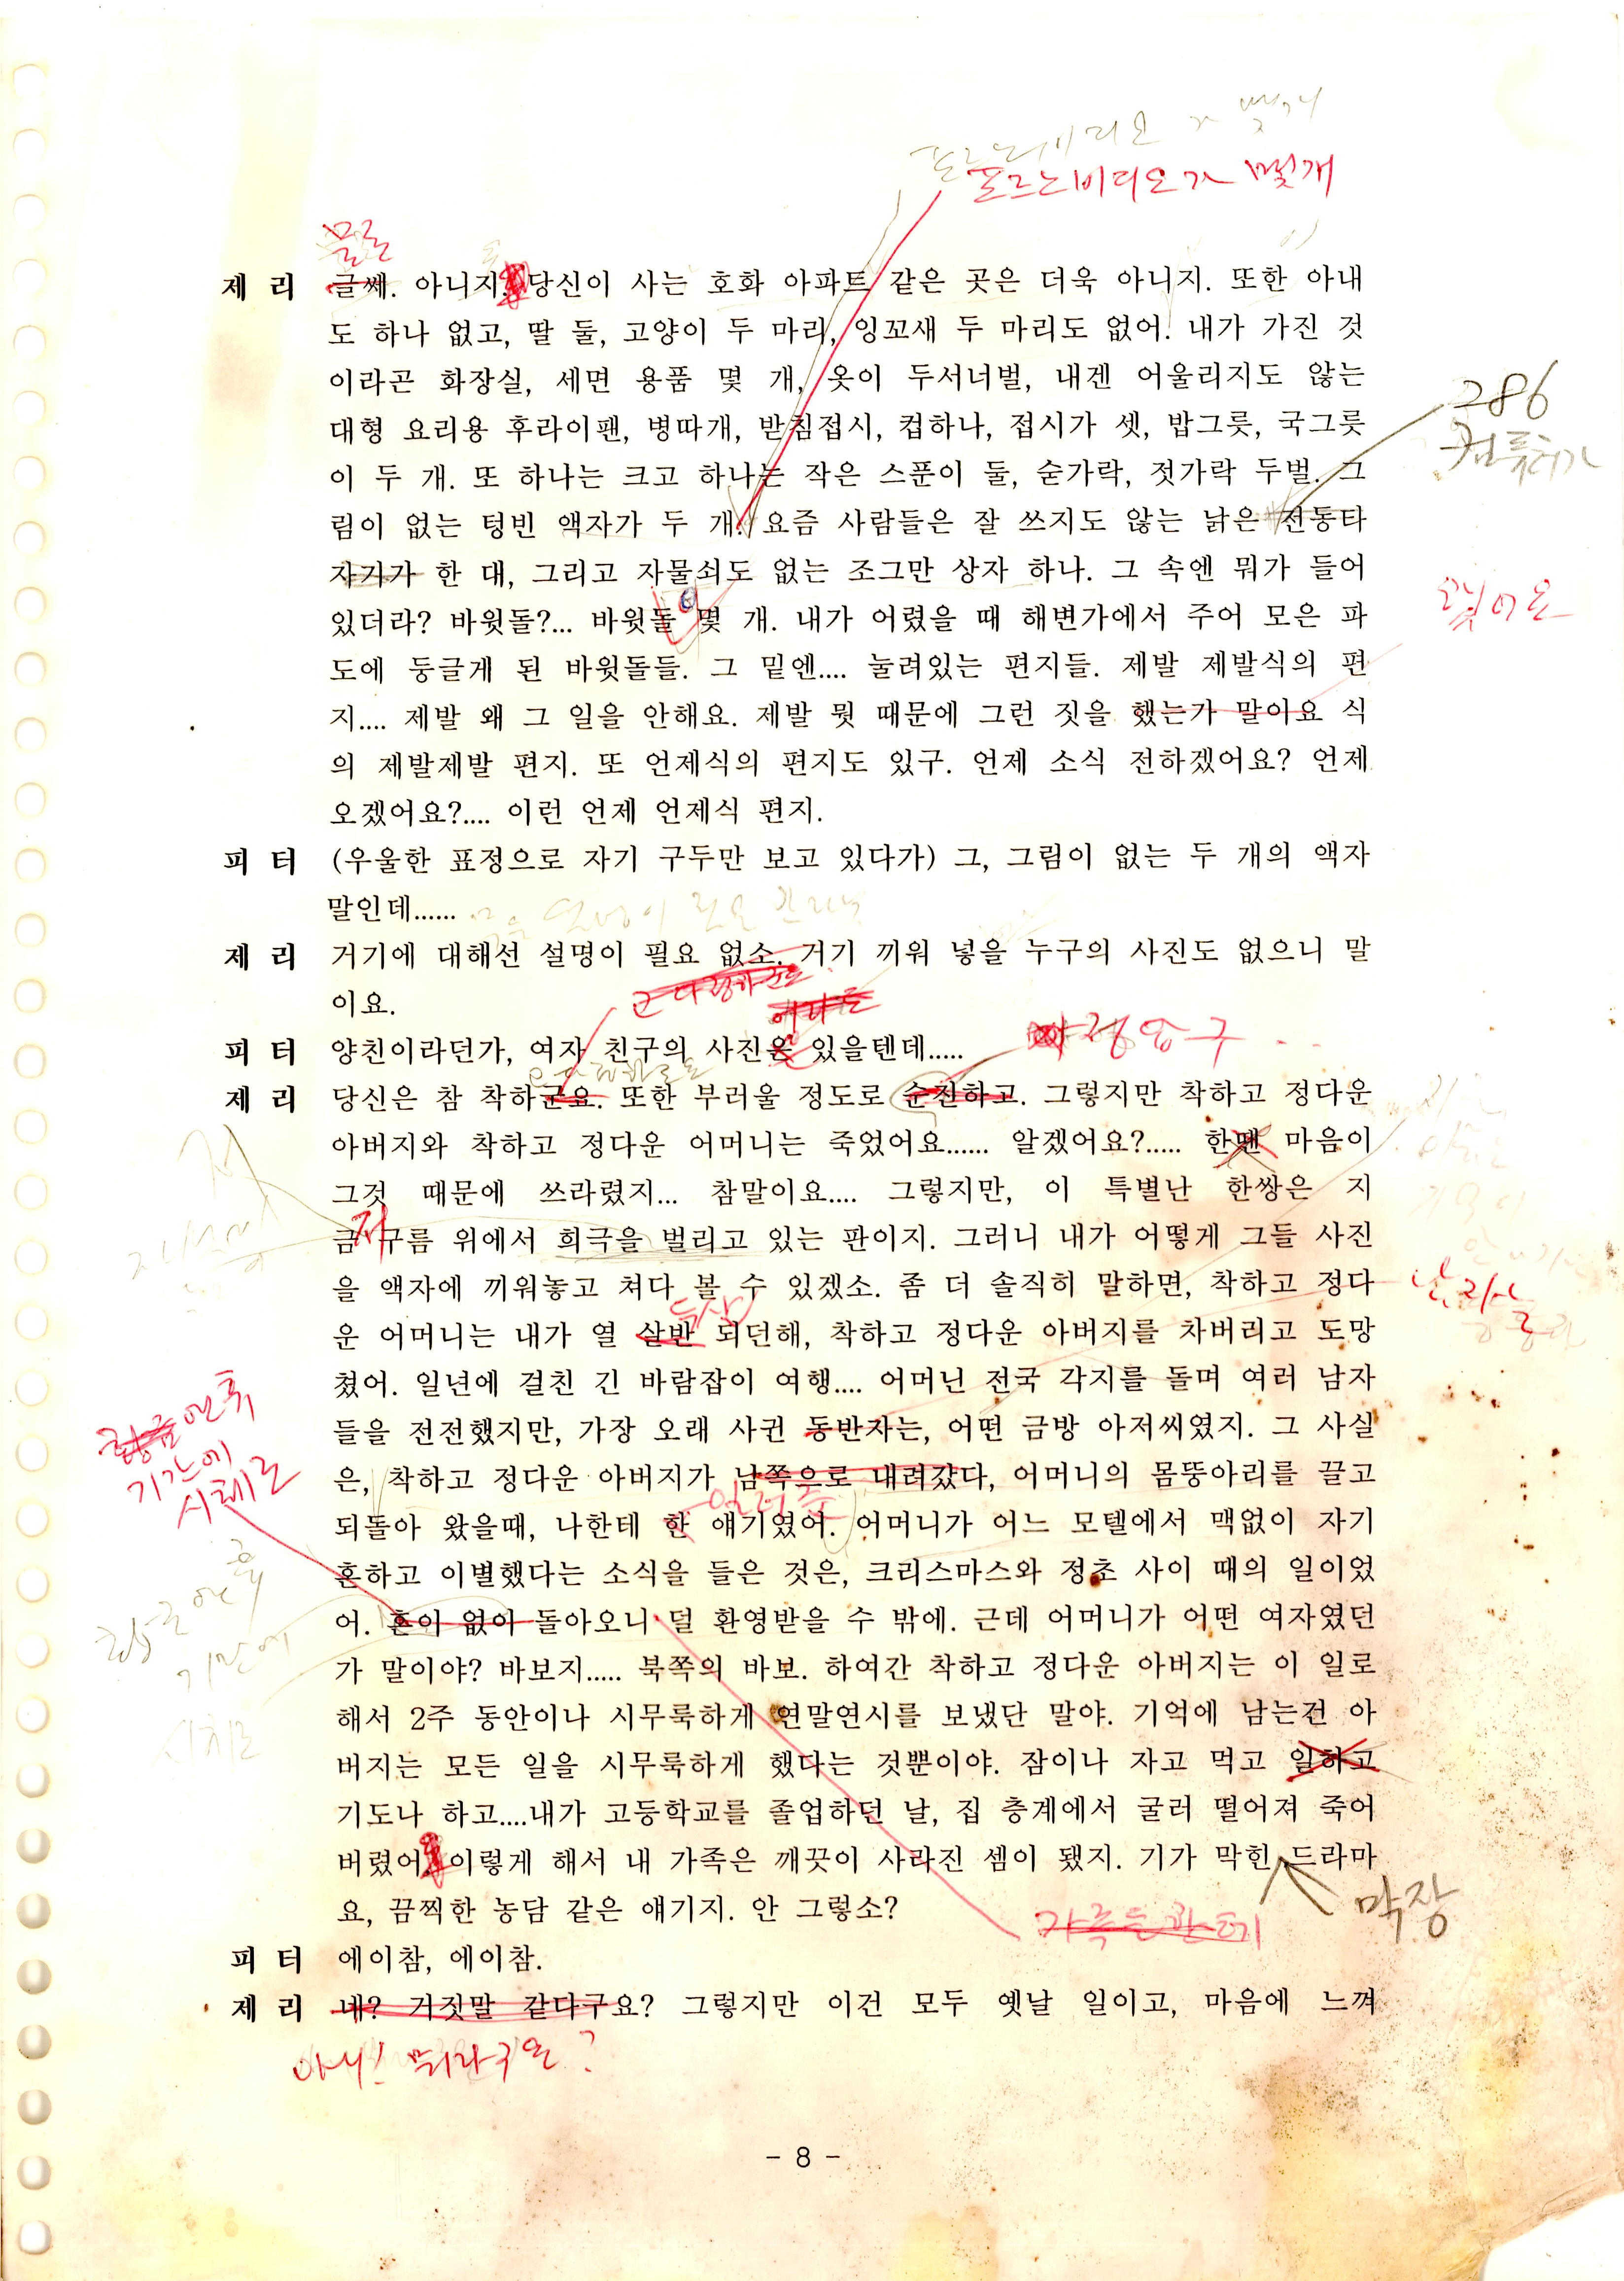 포르노비디오가 몇개
포르노비디오가 몇개
물론
제 리 글쎄. 아니지. 당신이 사는 호화 아파트 같은 곳은 더욱 아니지. 또한 아내
도 하나 없고, 딸 둘, 고양이 두 마리, 잉꼬새 두 마리도 없어. 내가 가진 것
이라곤 화장실, 세면 용품 몇 개, 옷이 두서너벌, 내겐 어울리지도 않는
286
대형 요리용 후라이팬, 병따개, 받침접시, 컵하나, 접시가 셋, 밥그릇, 국그릇
컴퓨터가
이 두 개. 또 하나는 크고 하나는 작은 스푼이 둘, 숟가락, 젓가락 두벌. 그
림이 없는 텅빈 액자가 두 개. 요즘 사람들은 잘 쓰지도 않는 낡은 전동타
자기가 한 대, 그리고 자물쇠도 없는 조그만 상자 하나. 그 속엔 뭐가 들어
있더라? 바윗돌?... 바윗돌 몇 개. 내가 어렸을 때 해변가에서 주어 모은 파
도에 둥글게 된 바윗돌들. 그 밑엔.... 눌려있는 편지들. 제발 제발식의 편
지.... 제발 왜 그 일을 안해요. 제발 뭣 때문에 그런 짓을 했는가 말이요 식
의 제발제발 편지. 또 언제식의 편지도 있구. 언제 소식 전하겠어요? 언제
오겠어요?.... 이런 언제 언제식 편지.
피 터 (우울한 표정으로 자기 구두만 보고 있다가) 그, 그림이 없는 두 개의 액자
말인데......
제 리 거기에 대해선 설명이 필요 없소. 거기 끼워 넣을 누구의 사진도 없으니 말
이요.
피 터 양친이라던가, 여자 친구의 사진은 있을텐데.....
제 리 당신은 참 착하군요. 또한 부러울 정도로 순진하고. 그렇지만 착하고 정다운
아버지와 착하고 정다운 어머니는 죽었어요...... 알겠어요?..... 한땐 마음이
그것 때문에 쓰라렸지... 참말이요.... 그렇지만, 이 특별난 한쌍은 지
저
금 구름 위에서 희극을 벌리고 있는 판이지. 그러니 내가 어떻게 그들 사진
을 액자에 끼워놓고 쳐다 볼 수 있겠소. 좀 더 솔직히 말하면, 착하고 정다
두살
운 어머니는 내가 열 살반 되던해, 착하고 정다운 아버지를 차버리고 도망
쳤어. 일년에 걸친 긴 바람잡이 여행.... 어머닌 전국 각지를 돌며 여러 남자
황금연휴
들을 전전했지만, 가장 오래 사귄 동반자는, 어떤 금방 아저씨였지. 그 사실
기간에
은, 착하고 정다운 아버지가 남쪽으로 내려갔다, 어머니의 몸뚱아리를 끌고
시체로
일러준
되돌아 왔을때, 나한테 한 얘기였어. 어머니가 어느 모텔에서 맥없이 자기
혼하고 이별했다는 소식을 들은 것은, 크리스마스와 정초 사이 때의 일이었
황금연휴
어. 혼이 없이 돌아오니 덜 환영받을 수 밖에. 근데 어머니가 어떤 여자였던
기간에
가 말이야? 바보지..... 북쪽의 바보. 하여간 착하고 정다운 아버지는 이 일로
해서 2주 동안이나 시무룩하게 연말연시를 보냈단 말야. 기억에 남는건 아
시체로
버지는 모든 일을 시무룩하게 했다는 것뿐이야. 잠이나 자고 먹고 일하고
기도나 하고....내가 고등학교를 졸업하던 날, 집 층계에서 굴러 떨어져 죽어
버렸어. 이렇게 해서 내 가족은 깨끗이 사라진 셈이 됐지. 기가 막힌 드라마
막장
요, 끔찍한 농담 같은 얘기지. 안 그렇소?
피 터 에이참, 에이참.
제 리 네? 거짓말 같다구요? 그렇지만 이건 모두 옛날 일이고, 마음에 느껴
아니! 뭐라구요?
- 8 -